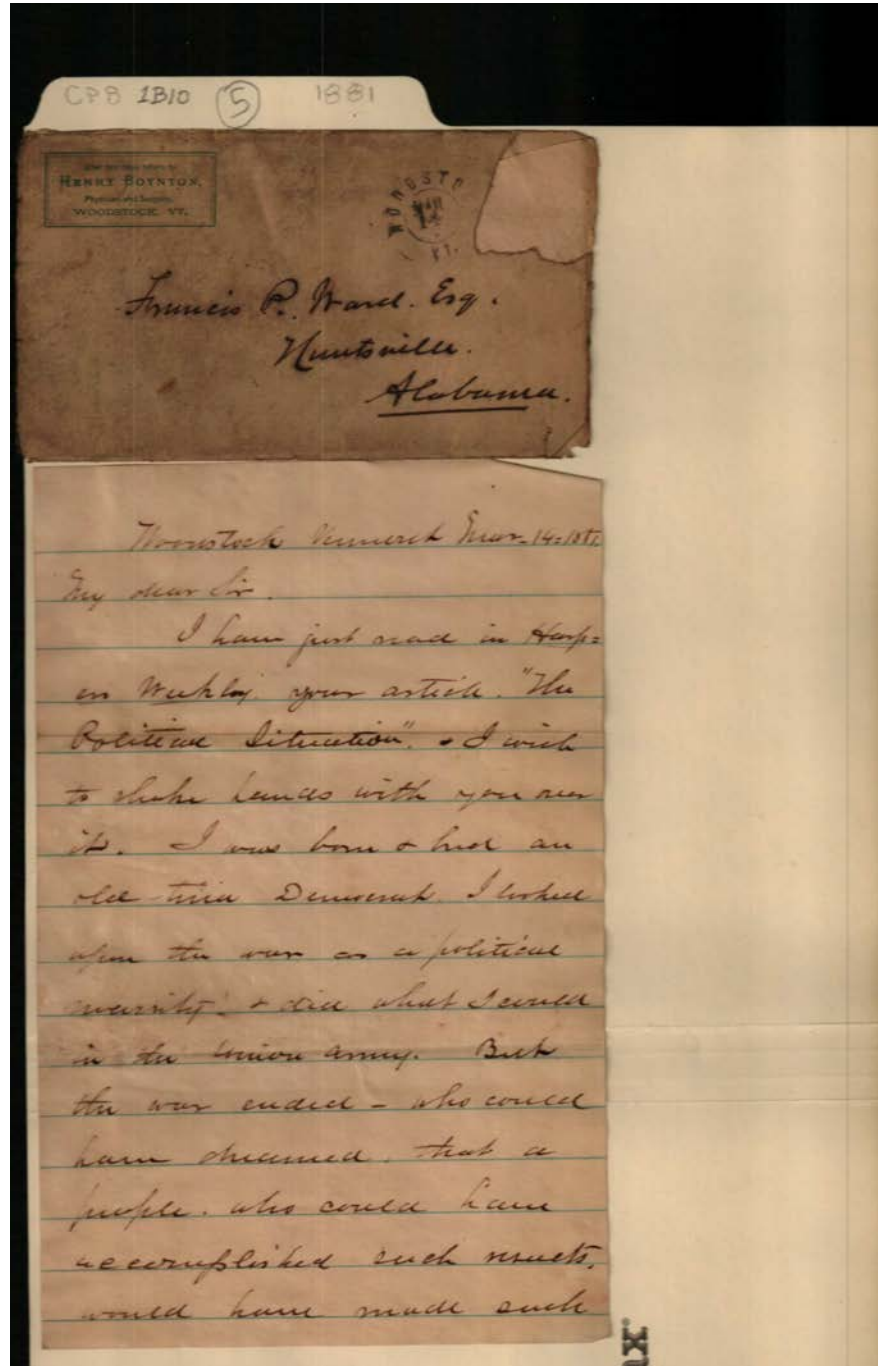 CPB 1B10 5 1881
HENRY BOYNTON,
Physician and Surgeon,
WOODSTOCK, VT.
WOODSTO
VT.
Francis P. Ward. Esq.
Huntsville.
Alabama.
Woodstock Vermont Mar-14-1881
My dear Sir.
I have just read in Harp=
ers Weekly. your article. "The
Political Situation". & I wish
to shake hands with you over
it. I was born & bred an
old-time Democrat. I looked
upon the war as a political
necessity & did what I could
in the Union army. But
the war ended - who could
have dreamed. that a
people. who could have
accomplished such results.
would have made such